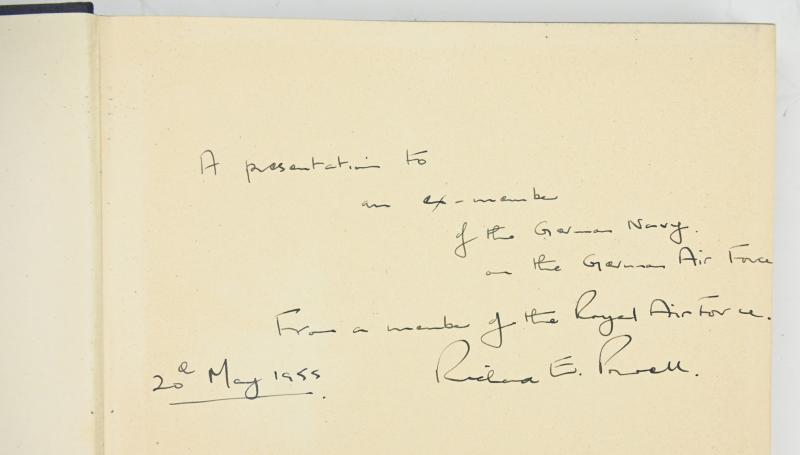 A presentation to
an ex-member
of the German Navy.
on the German Air Force
From a member of the Royal Air Force.
20d May 1955.
Richard E. Powell.